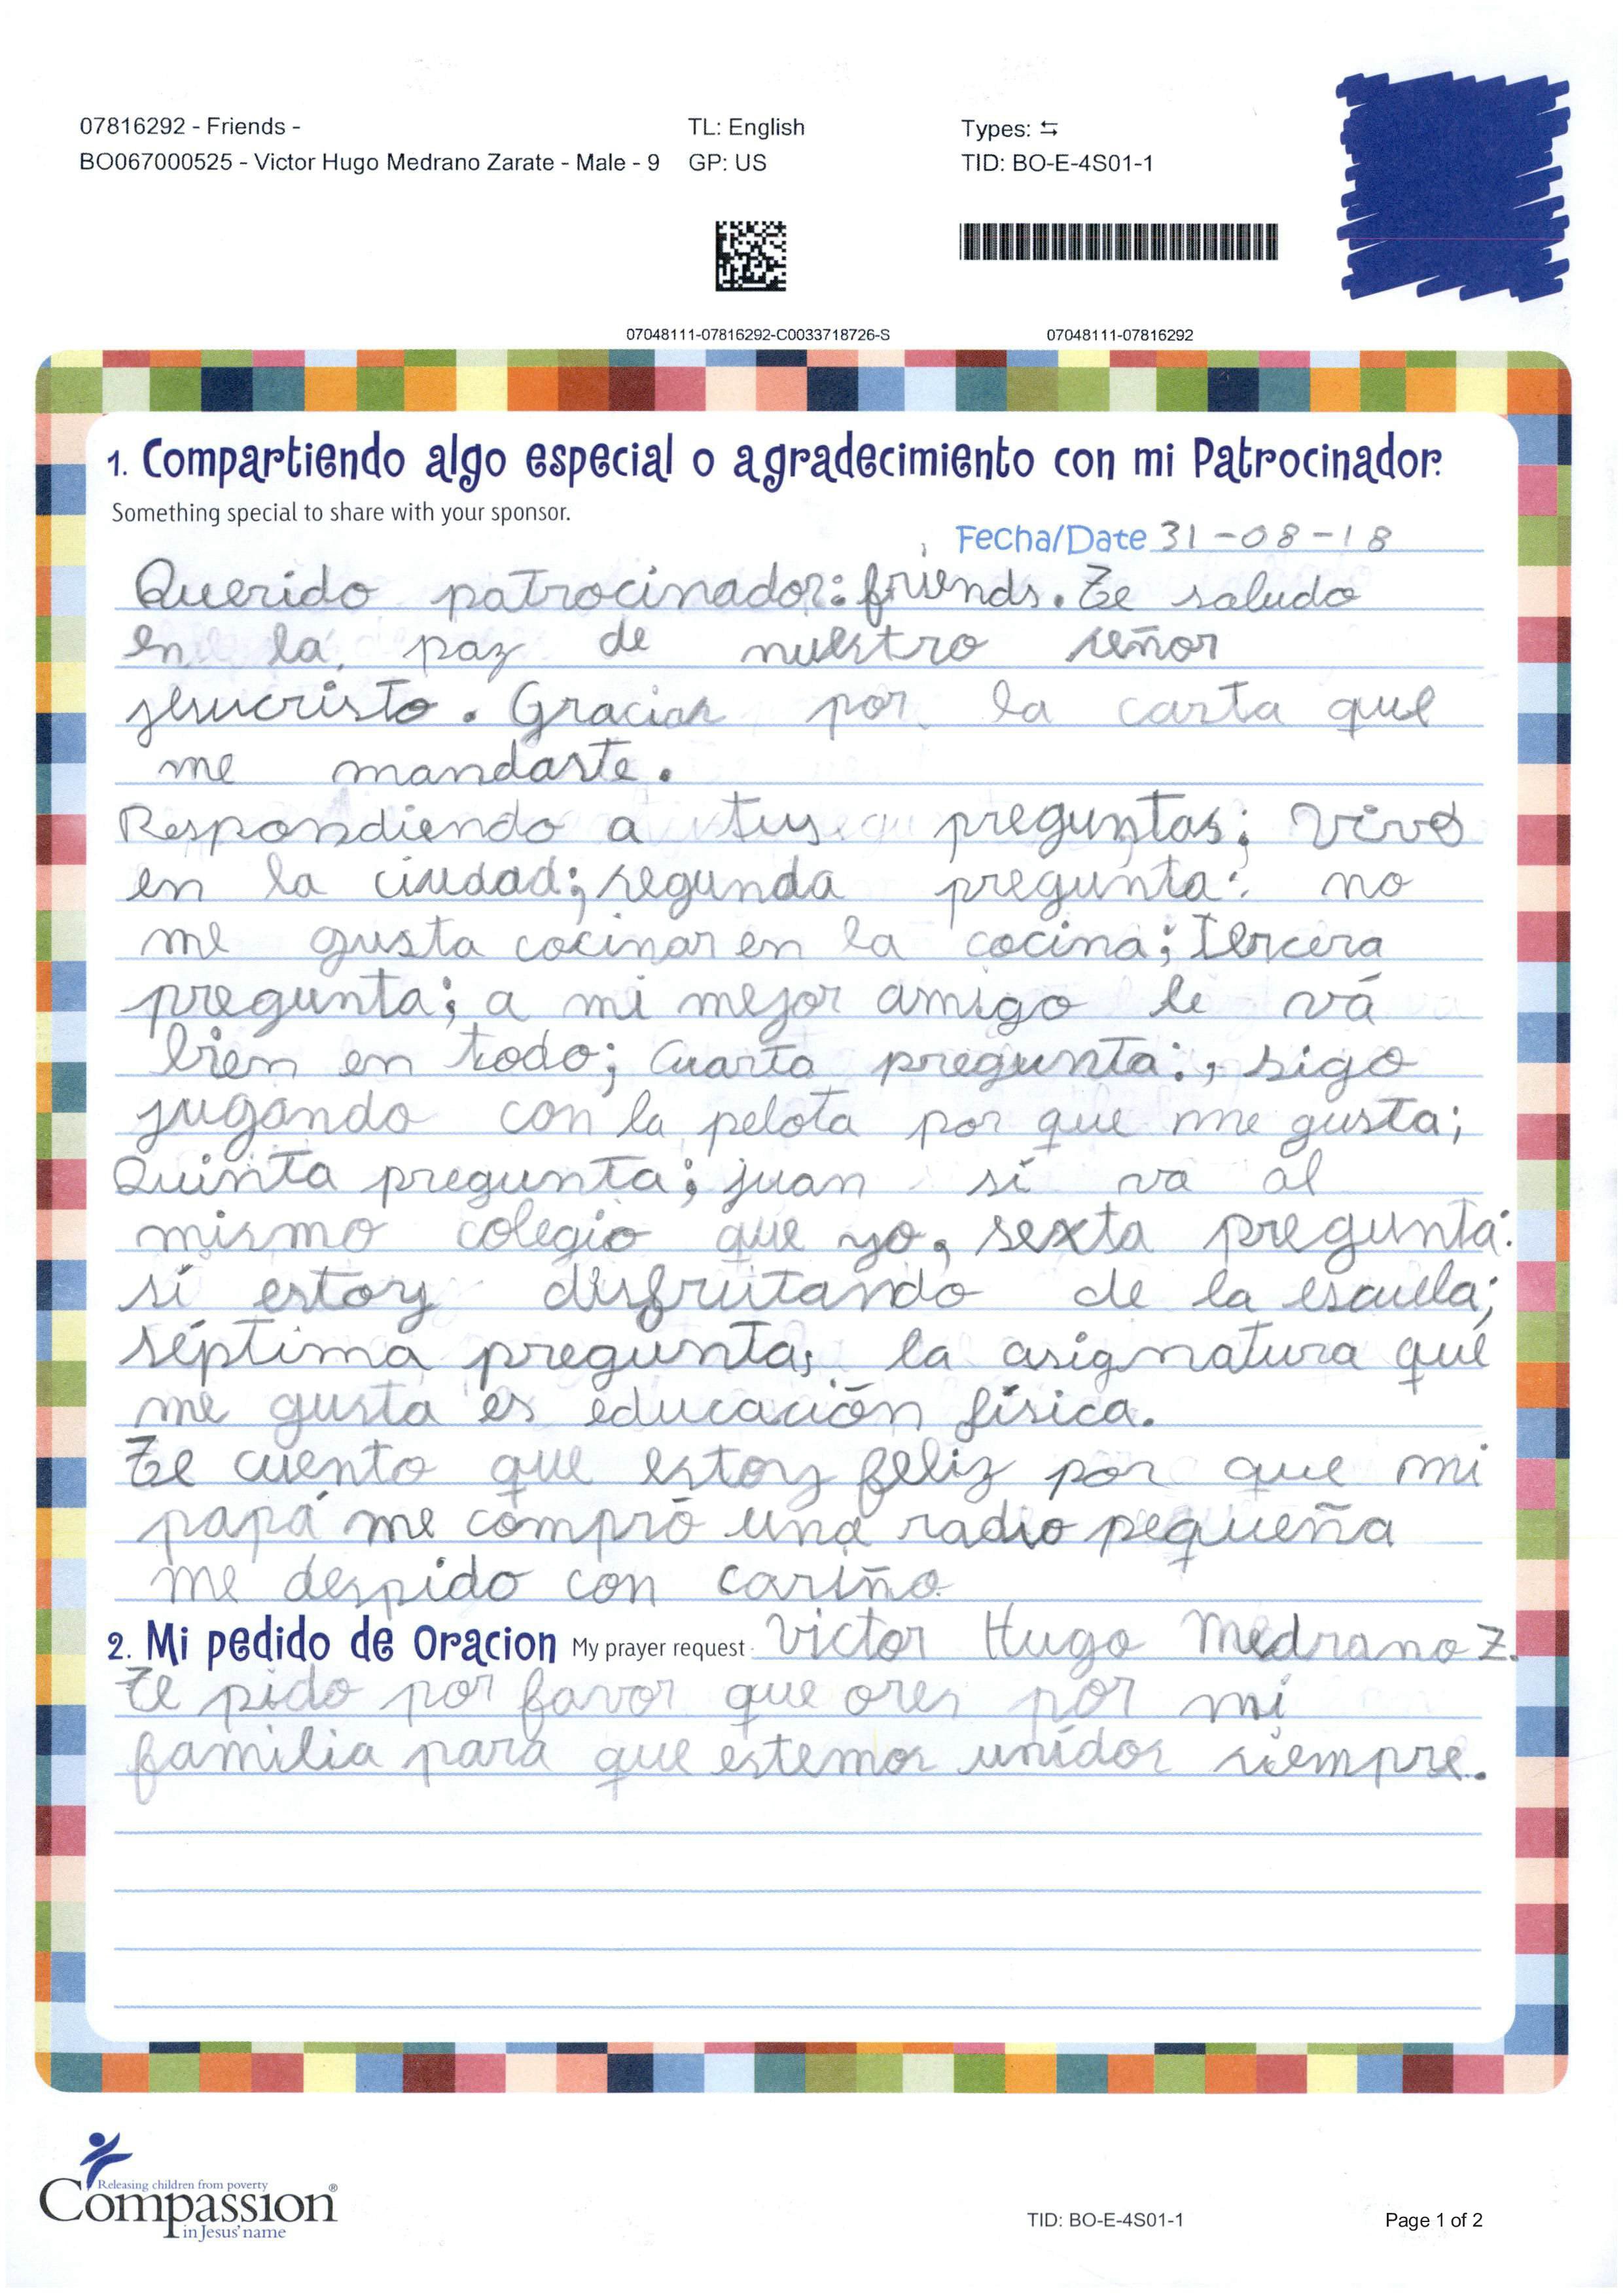 07816292 - Friends -
TL: English
Types: ⇆
BO067000525 - Victor Hugo Medrano Zarate - Male - 9
GP: US
TID: BO-E-4S01-1
07048111-07816292-C0033718726-S
07048111-07816292
1. Compartiendo algo especial o agradecimiento con mi Patrocinador.
Something special to share with your sponsor.
Fecha/Date 31-08-18
Querido patrocinador: friends. Te saludo
en la paz de nuestro señor
jesucristo. Gracias por la carta que
me mandaste.
Respondiendo a tus preguntas; Vivo
en la ciudad; segunda pregunta: no
me gusta cocinar en la cocina; tercera
pregunta; a mi mejor amigo le vá
bien en todo; Cuarta pregunta:, sigo
jugando con la pelota por que me gusta;
Quinta pregunta; juan sí va al
mismo colegio que yo, sexta pregunta:
sí estoy disfrutando de la escuela;
séptima pregunta; la asignatura que
me gusta es educación física.
Te cuento que estoy feliz por que mi
papá me compró una radio pequeña
me despido con cariño.
2. Mi pedido de Oracion My prayer request Victor Hugo Medrano Z.
Te pido por favor que ores por mi
familia para que estemos unidos siempre.
Releasing children from poverty
Compassion®
in Jesus' name
TID: BO-E-4S01-1
Page 1 of 2